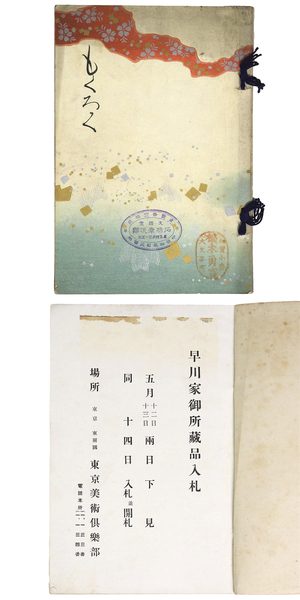 もくろく
早川家御所藏品入札
五月 十二日 十三日 兩日下見
同 十四日 入札 並 開札
場所 東京 東兩國 東京美術倶樂部
電話本所